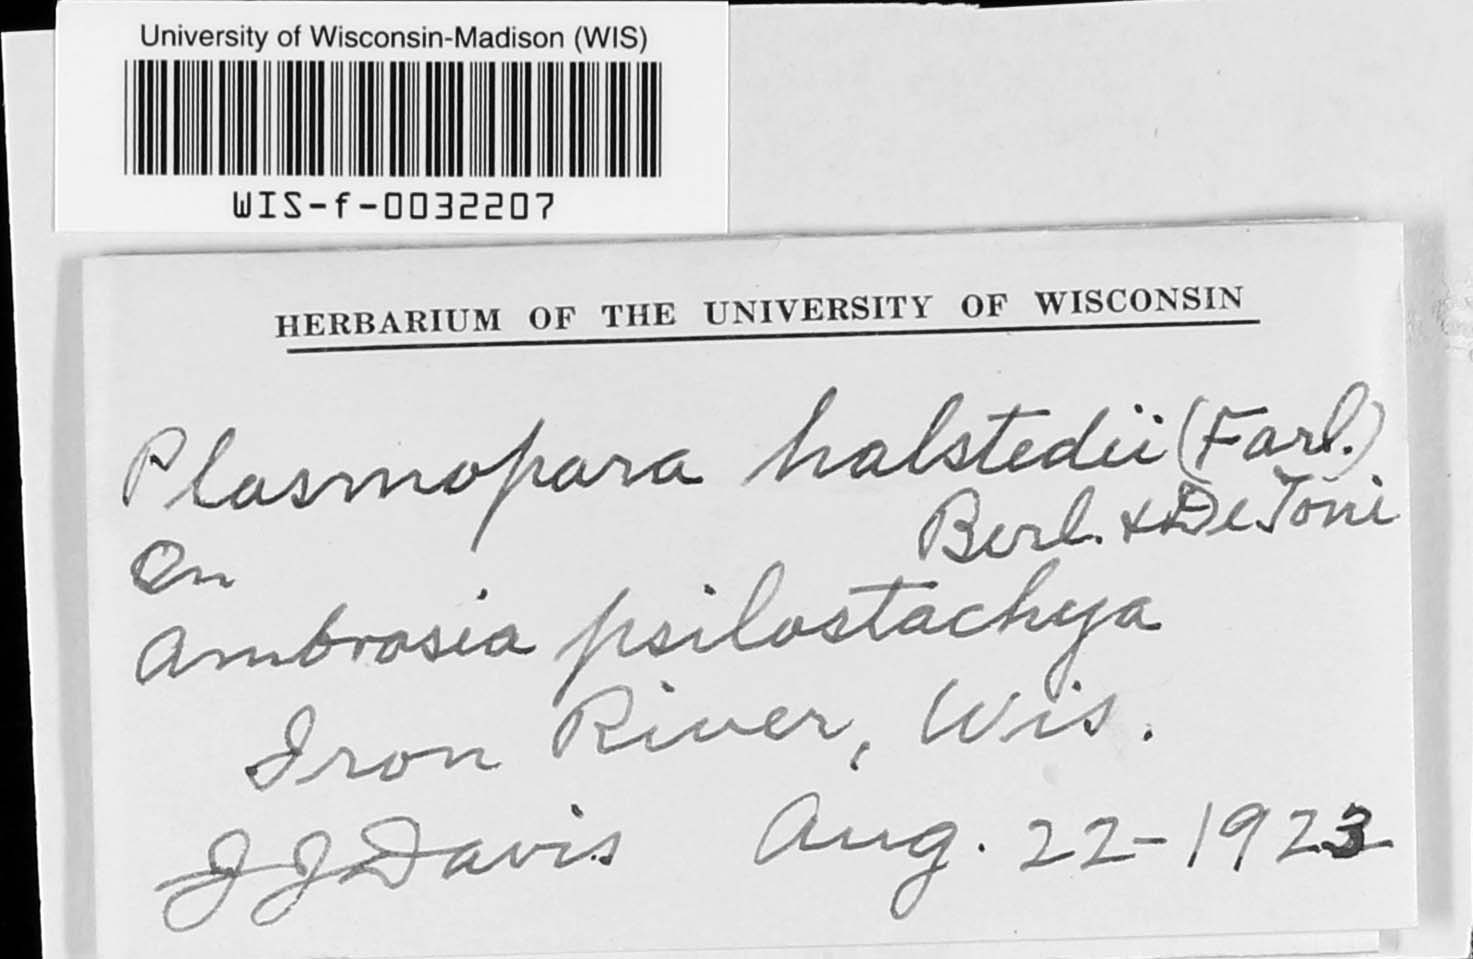 University of Wisconsin-Madison (WIS)
WIS-f-0032207
HERBARIUM OF THE UNIVERSITY OF WISCONSIN
Plasmopara halstedii (Farl.)
Berl. & De Toni
On
Ambrosia psilostachya
Iron River, Wis.
J J Davis Aug. 22-1923